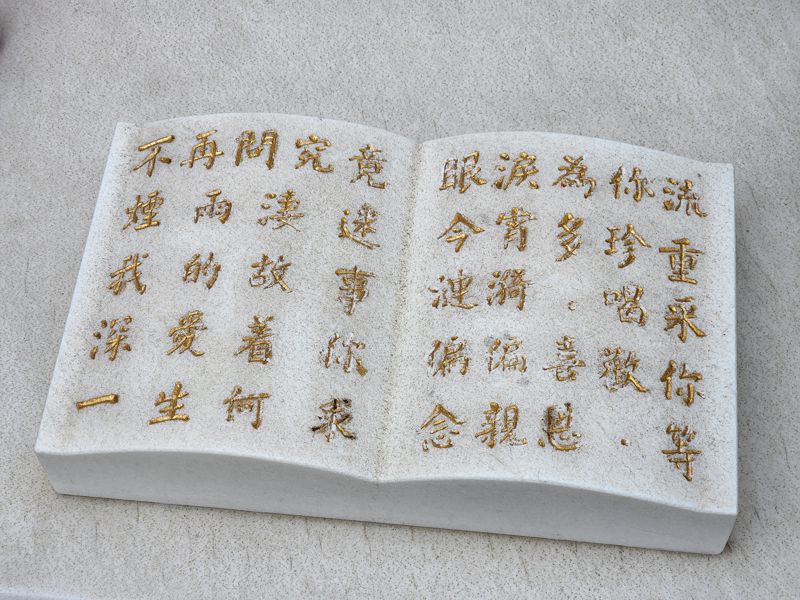 不再問究竟
煙雨淒迷
我的故事
深愛着你
一生何求
眼淚為你流
今宵多珍重
漣漪·喝采
偏偏喜歡你
念親恩·等